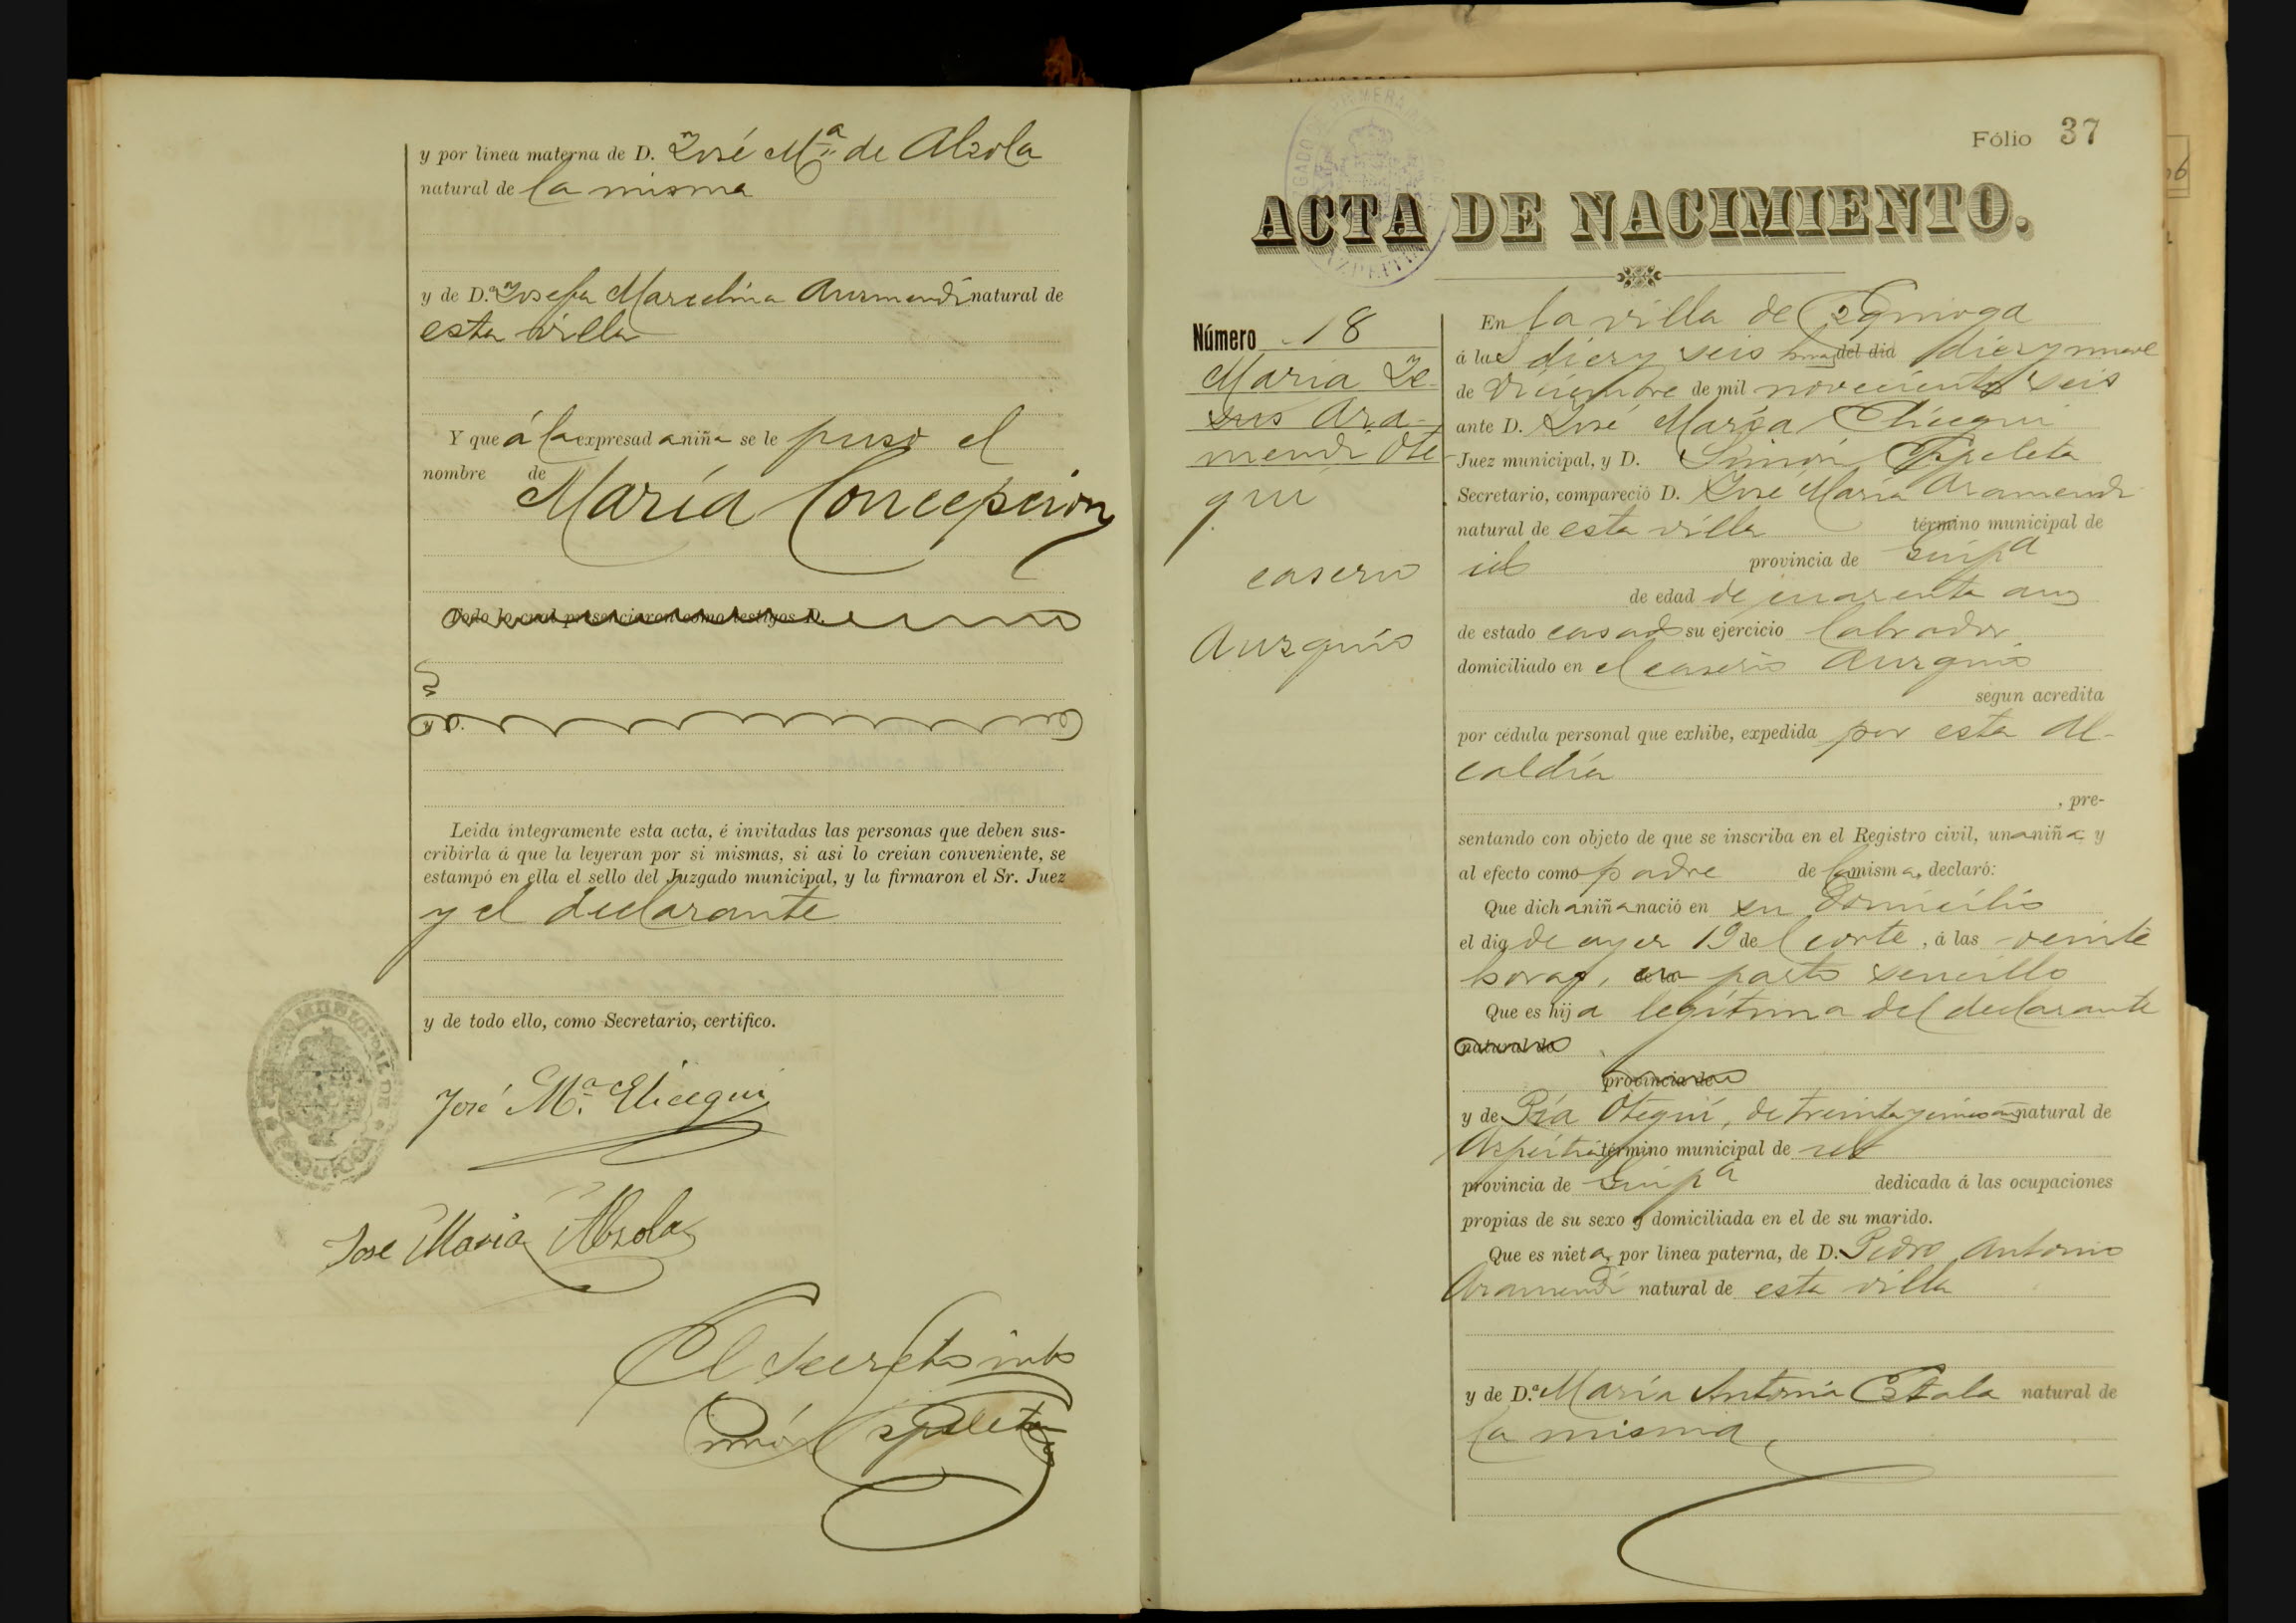 y por línea materna de D. José Mª de Alzola
natural de la misma
y de D.ª Josefa Marcelina Auzmendi natural de
esta villa
Y que á la expresada niña se le puso el
nombre de
María Concepcion
Todo lo cual presenciaron como testigos D.
y D.
Leida íntegramente esta acta, é invitadas las personas que deben sus-
cribirla á que la leyeran por si mismas, si asi lo creian conveniente, se
estampó en ella el sello del Juzgado municipal, y la firmaron el Sr. Juez
y el declarante
y de todo ello, como Secretario, certifico.
José Mª Elicegui
José María Alzola
El Secretº intº
Simón Ezpeleta
Fólio 37
ACTA DE NACIMIENTO.
Número 18
María Je-
sus Ara-
mendi Ote
gui
caserio
Auzquio
En la villa de Ezquioga
á las diez y seis horas del dia diez y nueve
de Diciembre de mil novecientos seis
ante D. José María Elicegui
Juez municipal, y D. Simón Ezpeleta
Secretario, compareció D. José María Aramendi
natural de esta villa término municipal de
id provincia de Guipª
de edad de cuarenta años
de estado casado su ejercicio labrador
domiciliado en el caserio Auzquio
segun acredita
por cédula personal que exhibe, expedida por esta Al-
caldía
, pre-
sentando con objeto de que se inscriba en el Registro civil, una niña y
al efecto como padre de la misma, declaró:
Que dicha niña nació en su domicilio
el dia de ayer 19 del corte, á las veinte
horas, de la parto sencillo
Que es hija legítima del declarante
natural de
provincia de
y de Pía Otegui, de treinta y cinco años natural de
Azpeitia término municipal de id
provincia de Guipª dedicada á las ocupaciones
propias de su sexo y domiciliada en el de su marido.
Que es nieta, por línea paterna, de D. Pedro Antonio
Aramendi natural de esta villa
y de D.ª María Antonia Estala natural de
la misma,